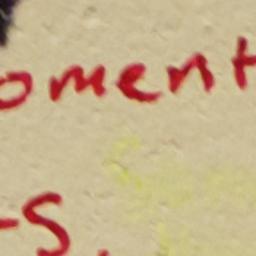 oment
-S.